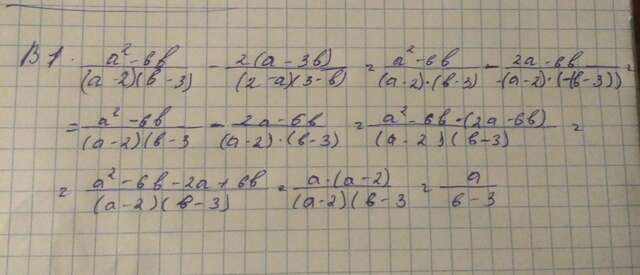 В 1. (a² - 6b)/((a-2)(b-3)) - (2(a-3b))/((2-a)(3-b)) = (a² - 6b)/((a-2)·(b-3)) - (2a-6b)/(-(a-2)·(-(b-3))) =
= (a² - 6b)/((a-2)(b-3) - (2a-6b)/((a-2)·(b-3)) = (a² - 6b - (2a-6b))/((a-2)(b-3)) =
= (a² - 6b - 2a + 6b)/((a-2)(b-3)) = (a·(a-2))/((a-2)(b-3) = a/(b-3)